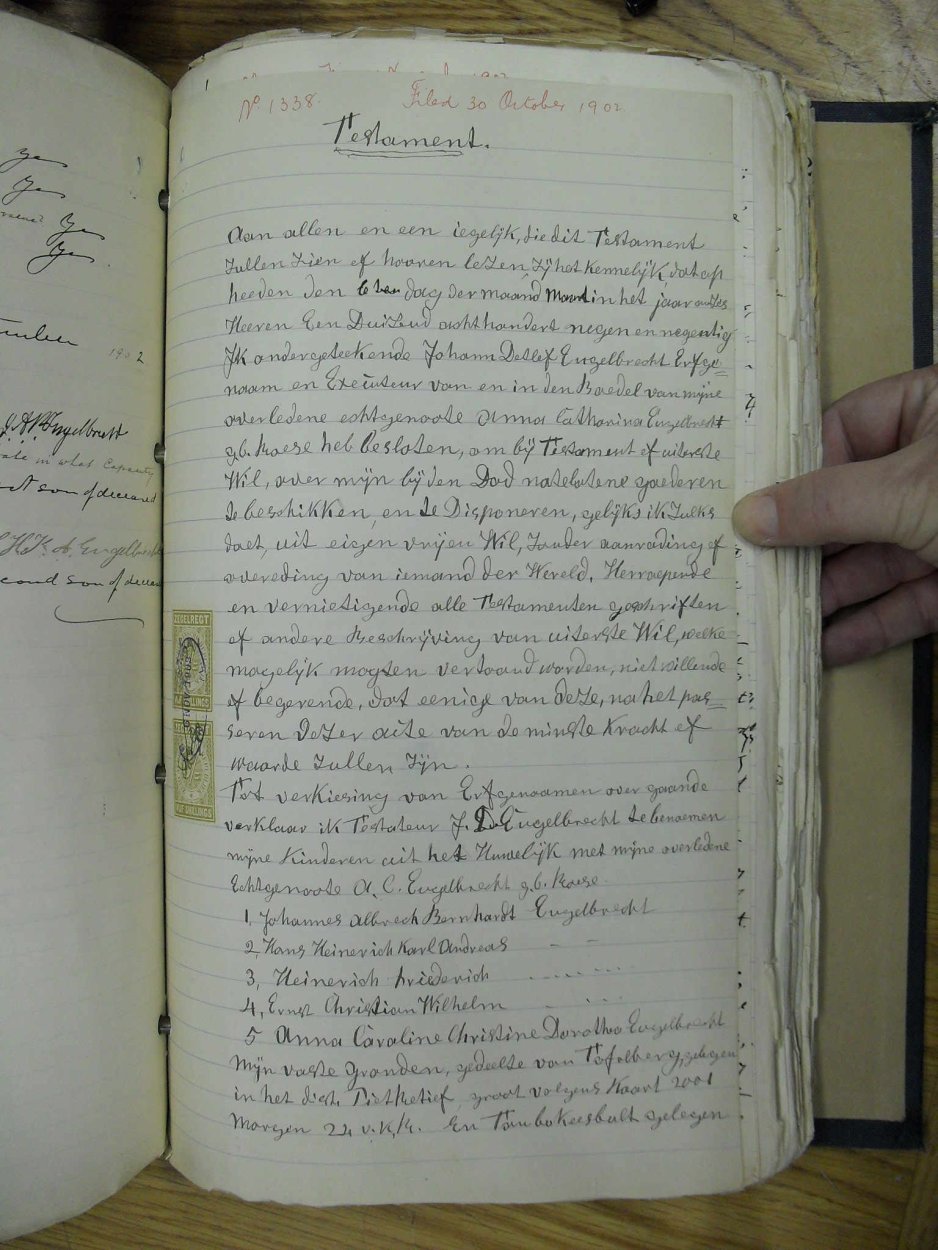 ye
ye
ye
ye
1902
J. A. B. Engelbrecht
state in what Capacity
son of deceased
H. K. A. Engelbrecht
second son of deceased
No. 1338. Filed 30 October 1902
Testament.
Aan allen en een iegelijk, die dit Testament
Zullen Zien of hooren lezen, zij het kennelijk, dat op
heeden den dag der maand Maart in het jaar onzes
Heeren Een Duizend achthandert negen en negentig
Ik ondergeteekende Johann Detlef Engelbrecht Erfge=
naam en Executeur van en in den Boedel van mijne
overledene echtgenoote Anna Catharina Engelbrecht
gb. Koese heb besloten, om bij Testament of uiterste
Wil, over mijn bij den Dod natelatene goederen
te beschikken, en te Disponeren, gelijks ik Zulks
doet, uit eigen vrijen Wil, Zonder aanrading of
overeding van iemand der Wereld. Herroepende
en vernietigende alle Testamenten geschriften
of andere Beschrijving van uiterste Wil, welke
mogelijk mogten vertoond worden, niet willende
of begerende, dat eenige van deze, na het pas=
seren Dezer acte van de minste Kracht of
waarde Zullen Zijn.
Tot verkiesing van Erfgenoamen over gaande
verklaar ik Testateur J. D. Engelbrecht te benoemen
mijne Kinderen uit het Huwelijk met mijne overledene
Echtgenoote A. C. Engelbrecht gb. Koese.
1, Johannes Albrech Bernhardt Engelbrecht
2, Hans Heinerich Karl Andreas - -
3, Heinerich Friederich - - - -
4, Ernst Christian Wilhelm - - -
5 Anna Caroline Christine Dorothea Engelbrecht
Mijn vaste Gronden, gedeelte van Tafelberg, gelegen
in het dist. Piet Retief, groot volgens Kaart 2001
Morgen 24 v. K. R. En Tambokiesbult gelegen
ZEGELREGT
SHILLINGS
VYF SHILLINGS